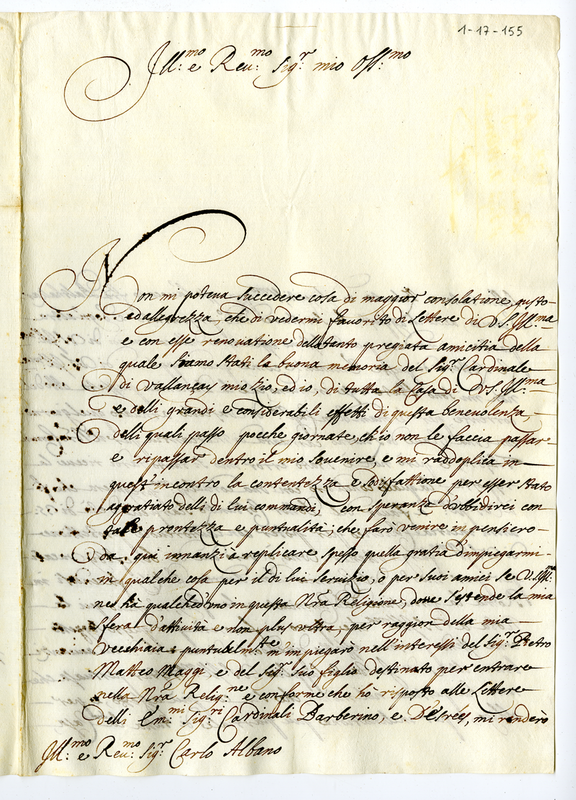 1-17-155
Ill:mo e Reu:mo Sig:r mio Oss:mo
Non mi poteua succedere cosa di maggior consolatione, gusto
ed allegrezza, che di vedermi fauorito di Lettere di VS. Ill:ma
e con esse renouatione della tanto pregiata amicitia della
quale siamo stati la buona memoria del Sig:r Cardinale
di Vallançay mio Zio, ed io, di tutta la Casa di VS. Ill:ma
e delli grandi e considerabili effetti di questa beneuolenza
delli quali passo poche giornate, ch'io non le faccia passar
e ripassar dentro il mio souenire, e mi raddoplica in
quest'incontro la contentezza e sodisfattione per esser stato
agratiato delli di lui commandi, con speranza d'ubbidirci con
tale prontezza e puntualità, che farò venire in pensiero
da qui innanzi à replicare spesso quella gratia d'impiegarmi
in qualche cosa per il di lui seruitio, o per suoi amici se V.S. Ill:ma
ne hà qualched'uno in questa Nra Religione, doue s'estende la mia
sfera d'attiuità e non plus vltra, per raggion della mia
vecchiaia; puntualm:te m'impiegarò nell'interessi del Sig:r Pietro
Matteo Maggi, e del Sig:r suo figlio destinato per entrare
nella Nra Relig:ne e conforme che hò risposto alle Lettere
delli Em:mi Sig:ri Cardinali Barberino, e D'Estreés, mi renderò
Ill:mo e Reu:mo Sig:r Carlo Albano